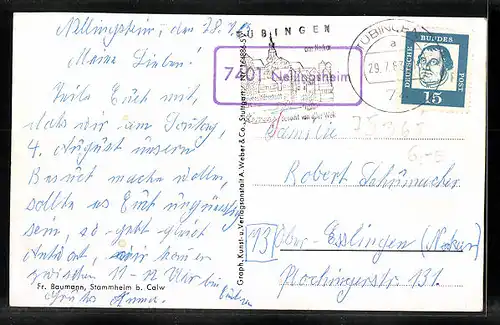 Nellingsheim, den 28.7.63
Meine Lieben!
Teile Euch mit,
daß wir am Sonntag,
4. August unseren
Besuch machen wollen,
sollte es Euch ungünstig
sein, so gebt gleich
Antwort, wir kommen
zwischen 11-12 Uhr bei
Grüße Anna.
Fr. Baumann, Stammheim b. Calw
Graph. Kunst- u. Verlagsanstalt A. Weber & Co., Stuttgart
TÜBINGEN
am Neckar
7401 Nellingsheim
TÜBINGEN
a
29.7.63
DEUTSCHE BUNDES POST
15
Familie
Robert Schumacher
73 Ober-Esslingen (Neckar)
Plochingerstr 131.